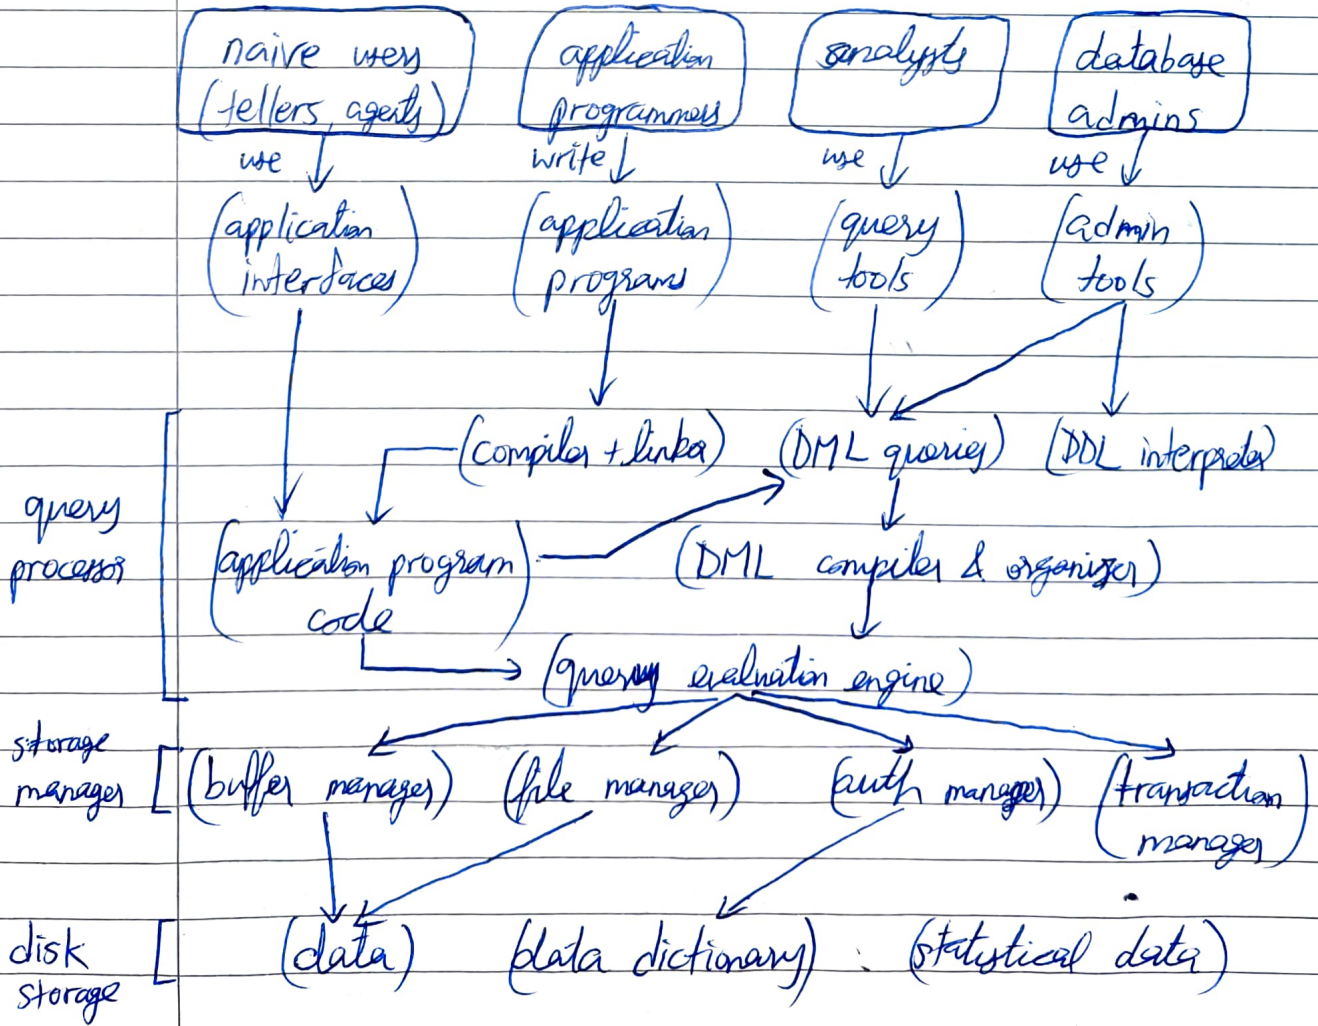 naive users
(tellers, agents)
application
programmers
analysts
database
admins
use
write
use
use
(application
interfaces)
(application
programs)
(query
tools)
(admin
tools)
(compiler + linker)
(DML queries)
(DDL interpreter)
query
processor
(application program
code)
(DML compiler & organizer)
(query evaluation engine)
storage
manager
(buffer manager)
(file manager)
(auth manager)
(transaction
manager)
disk
storage
(data)
(data dictionary)
(statistical data)